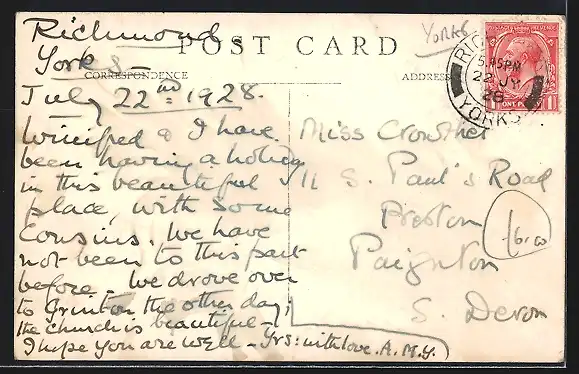 Richmond
Yorks -
POST CARD
Yorks
CORRESPONDENCE
ADDRESS
RICHMOND
5.45PM
22 JY
28
YORKS
July 22nd = 1928.
Winifred & I have
been having a holiday
in this beautiful
place, with some
Cousins. We have
not been to this part
before. We drove over
to Grinton the other day;
the church is beautiful -
I hope you are well - Yrs: with love. A.M.Y.
Miss Crowther
11 S. Paul's Road
Preston
Paignton
S. Devon
£6.00